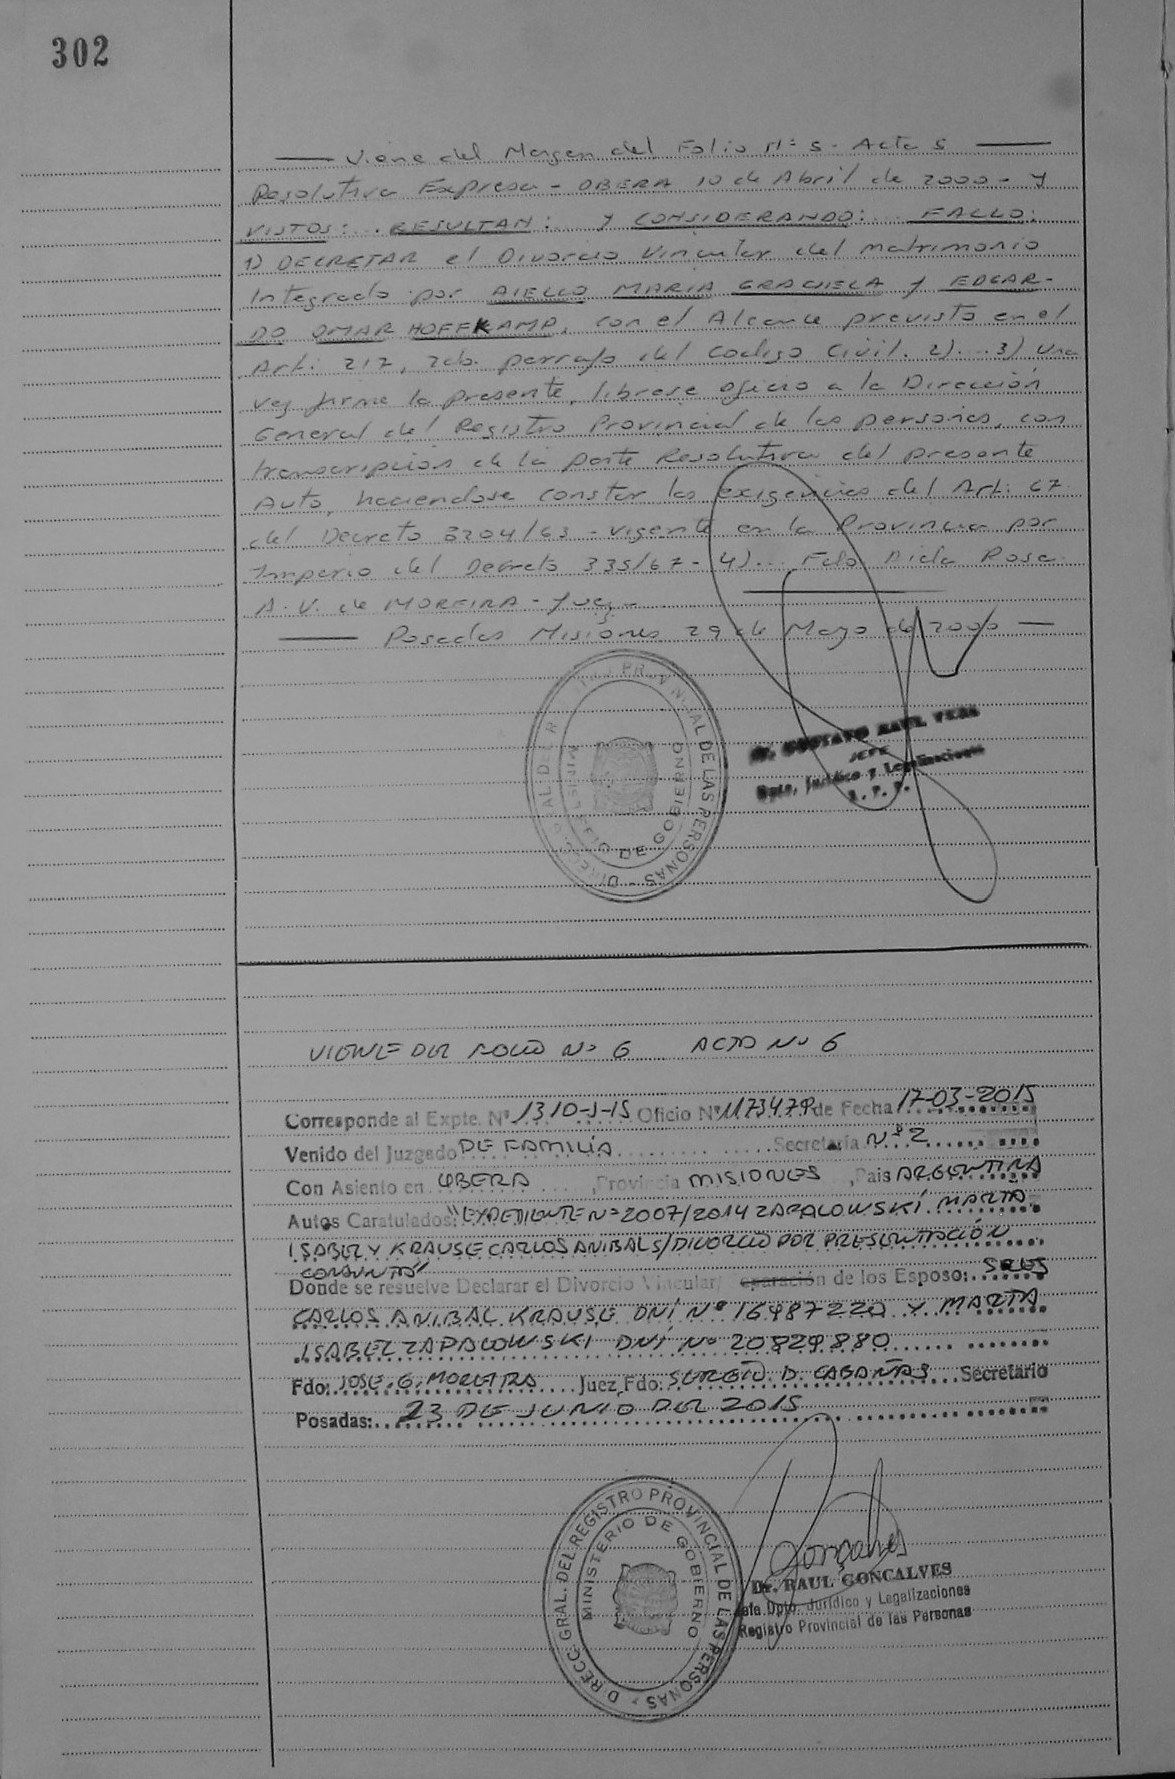 302
Viene del Margen del Folio Nº 5 - Acta 5
Resolutiva Expresa - OBERA 10 de Abril de 2000 - y
VISTOS: .. RESULTAN: y CONSIDERANDO: FALLO:
1) DECRETAR el Divorcio Vincular del matrimonio
Integrado por AIELLO MARIA GRACIELA y EDGAR-
DO OMAR HOFFKAMP, con el Alcance previsto en el
Art: 217, 2do. parrafo del Codigo Civil. 2) .. 3) Una
vez firme la presente, librese oficio a la Dirección
General del Registro Provincial de las personas, con
transcripcion de la parte Resolutiva del presente
Auto, haciendose constar las exigencias del Art: 67
del Decreto 8204/63 - vigente en la Provincia por
Imperio del Decreto 335/67 - 4) ... Fdo Aida Rosa
A. V. de MOREIRA - Juez -
Posadas Misiones 29 de Mayo de 2000
DIRECC. GRAL. DEL REG. PROVINCIAL DE LAS PERSONAS
MINISTERIO DE GOBIERNO
Dr. GUSTAVO RAUL VERA
JEFE
Dpto. Jurídico y Legalizaciones
R. P. P.
VIENE DEL FOLIO Nº 6 ACTA Nº 6
Corresponde al Expte. Nº 1310-J-15 Oficio Nº 1173479 de Fecha 17-03-2015
Venido del Juzgado DE FAMILIA Secretaría Nº 2
Con Asiento en OBERA , Provincia MISIONES , Pais ARGENTINA
Autos Caratulados: "EXPEDIENTE Nº 2007/2014 ZAPALOWSKI MARTA
ISABEL Y KRAUSE CARLOS ANIBAL S/DIVORCIO POR PRESENTACIÓN
CONJUNTA"
Donde se resuelve Declarar el Divorcio Vincular/ eparación de los Esposo: SRES
CARLOS ANIBAL KRAUSE DNI Nº 16487220 Y MARTA
ISABEL ZAPALOWSKI DNI Nº 20829880
Fdo: JOSE G. MOREIRA Juez Fdo: SERGIO D. CABAÑAS Secretario
Posadas: 23 DE JUNIO DEL 2015
DIRECC. GRAL. DEL REGISTRO PROVINCIAL DE LAS PERSONAS
MINISTERIO DE GOBIERNO
Gonçalves
Dr. RAUL GONCALVES
Jefe Dpto. Jurídico y Legalizaciones
Registro Provincial de las Personas